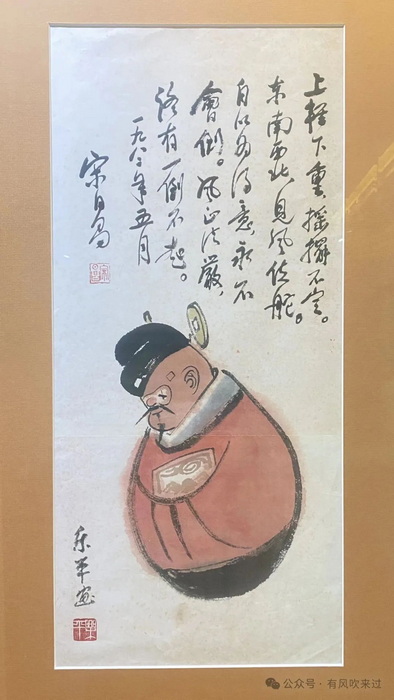 上轻下重，摇擺不定。
东南西北，見风使舵。
自以为得意，永不
會倒。风正法嚴，
终有一倒不起。
一九八二年五月
宋日昌
乐平画
公众号·有风吹来过